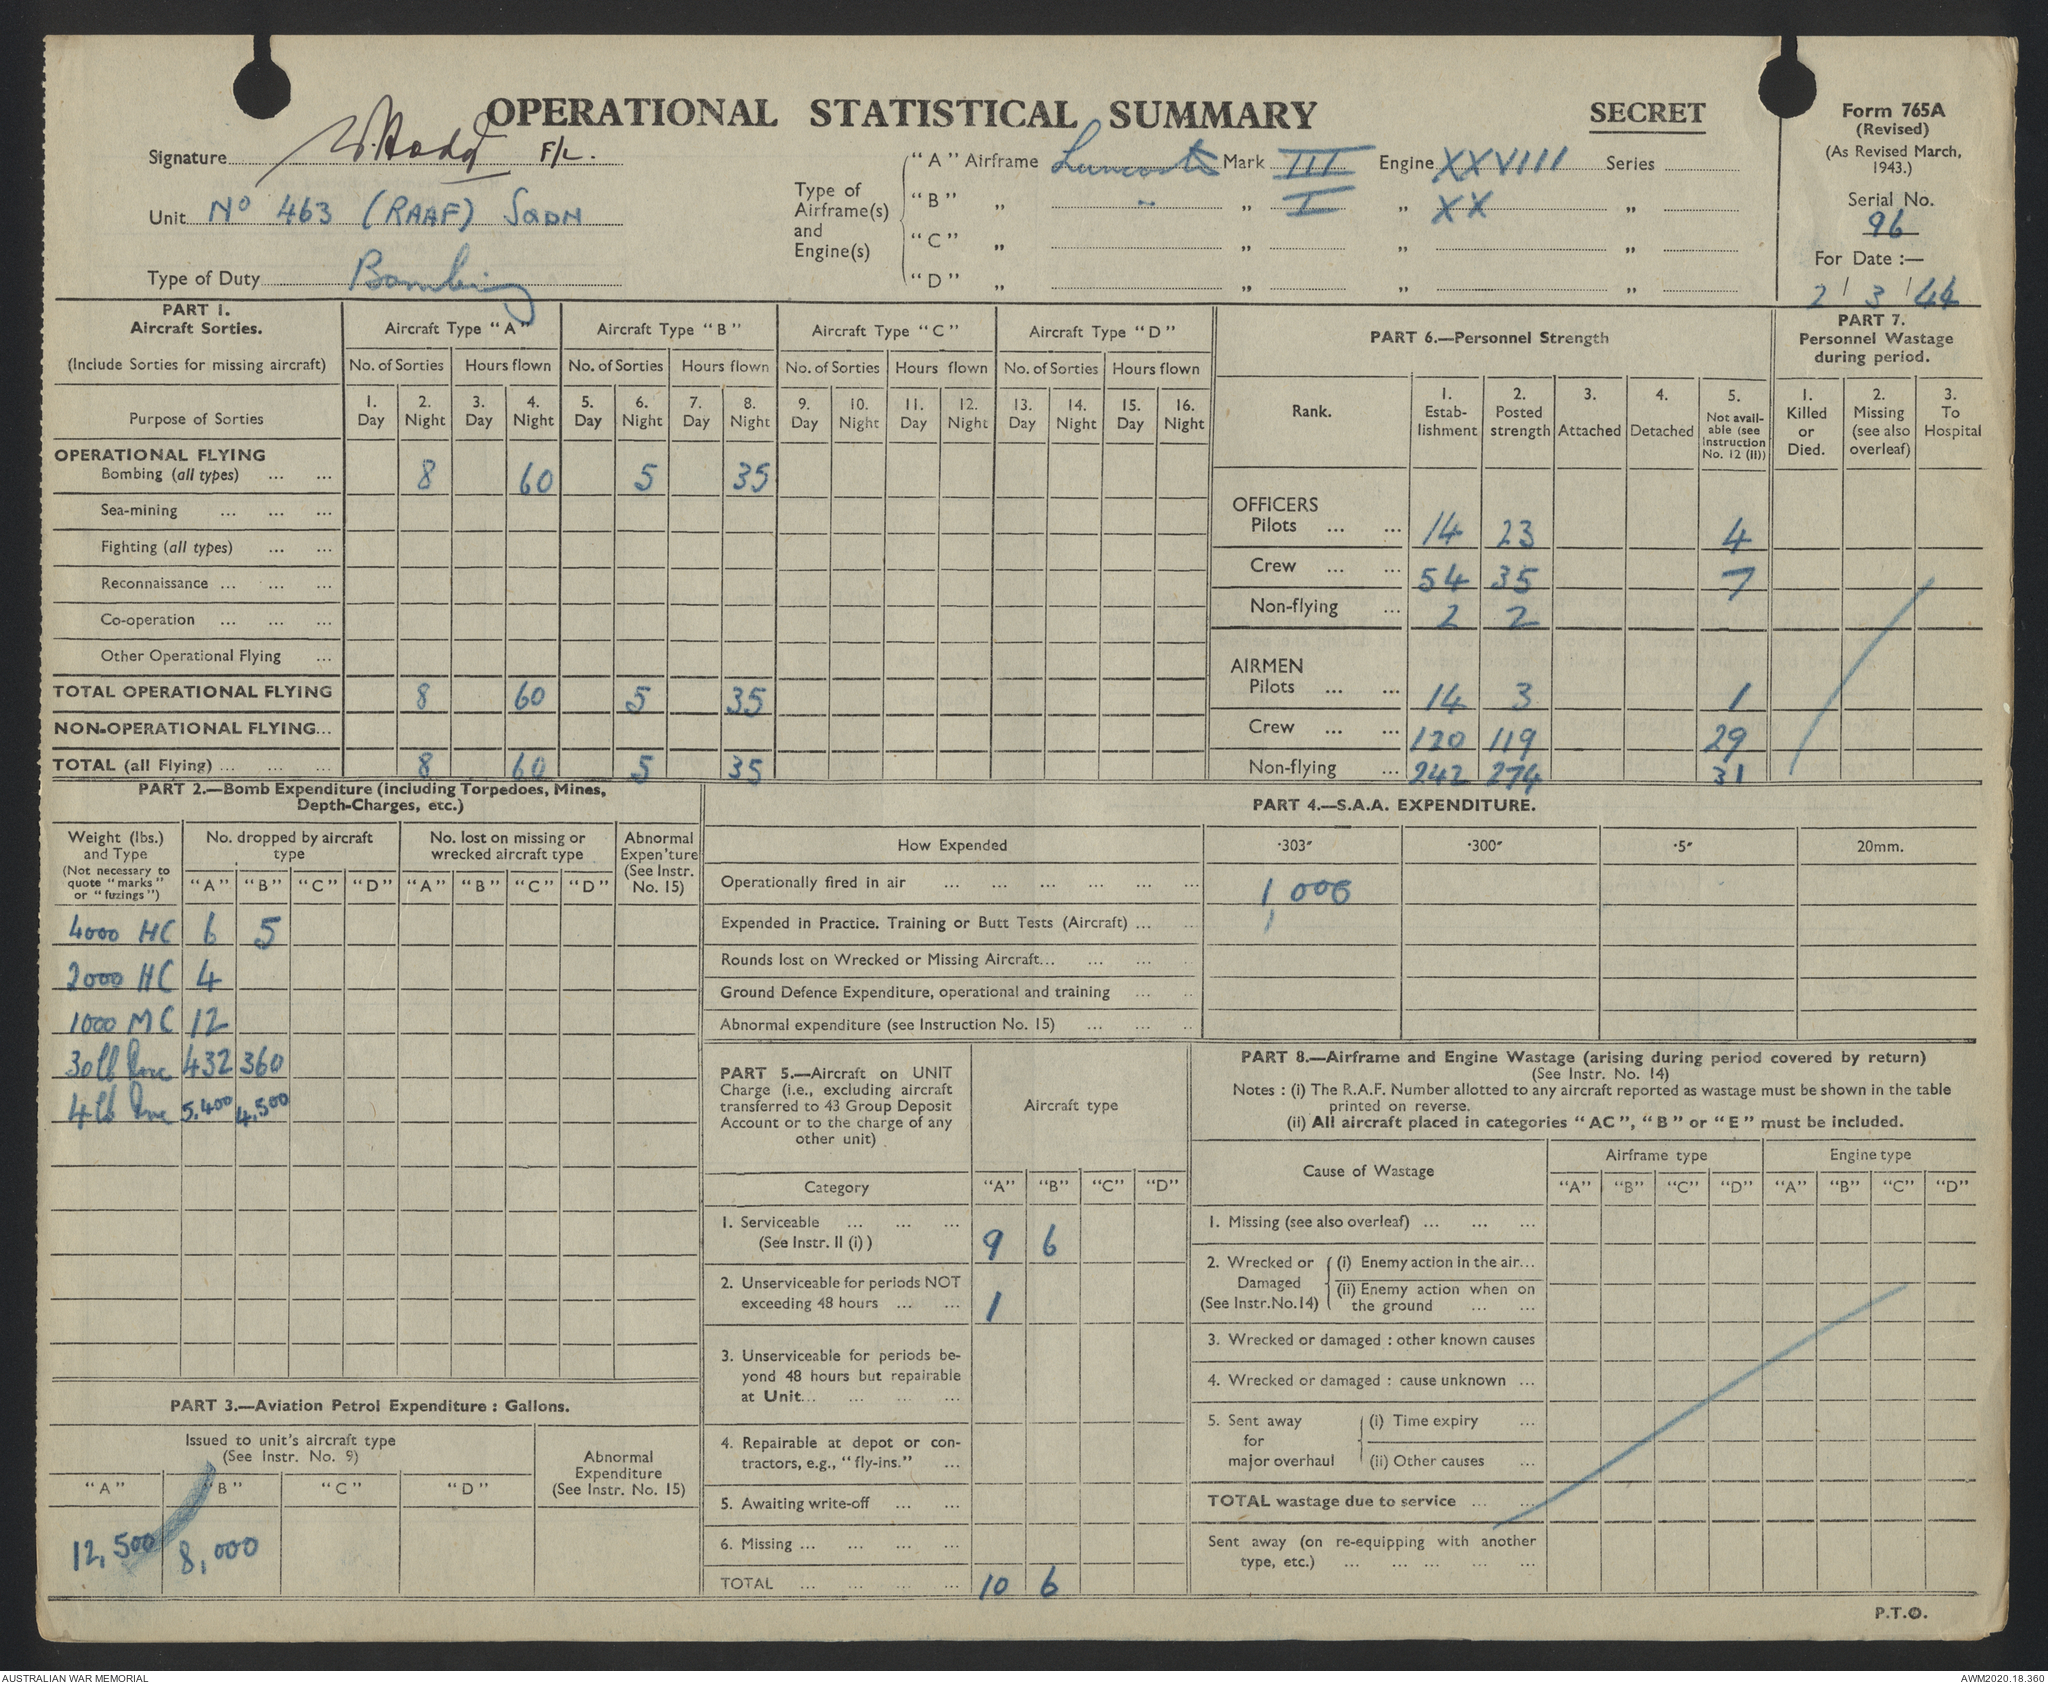 OPERATIONAL STATISTICAL SUMMARY
SECRET
Form 765A
(Revised)
(As Revised March,
1943.)
Serial No.
96
For Date :—
2 / 3 / 44
Signature F/L.
Unit No 463 (RAAF) SQDN
Type of Duty Bombing
Type of
Airframe(s)
and
Engine(s)
"A" Airframe Lancaster Mark III Engine XXVIII Series
"B" „ " „ I „ XX „
"C" „ „ „ „
"D" „ „ „ „
PART 1.
Aircraft Sorties.
(Include Sorties for missing aircraft)
Purpose of Sorties
Aircraft Type "A" Aircraft Type "B" Aircraft Type "C" Aircraft Type "D"
No. of Sorties Hours flown No. of Sorties Hours flown No. of Sorties Hours flown No. of Sorties Hours flown
1. 2. 3. 4. 5. 6. 7. 8. 9. 10. 11. 12. 13. 14. 15. 16.
Day Night Day Night Day Night Day Night Day Night Day Night Day Night Day Night
OPERATIONAL FLYING
Bombing (all types) ... ... 8 60 5 35
Sea-mining ... ... ...
Fighting (all types) ... ...
Reconnaissance ... ... ...
Co-operation ... ... ...
Other Operational Flying ...
TOTAL OPERATIONAL FLYING 8 60 5 35
NON-OPERATIONAL FLYING...
TOTAL (all Flying) ... ... ... 8 60 5 35
PART 6.—Personnel Strength
Rank.
1. Estab-lishment
2. Posted strength
3. Attached
4. Detached
5. Not avail-able (see Instruction No. 12 (II))
OFFICERS
Pilots ... ... 14 23 4
Crew ... ... 54 35 7
Non-flying ... 2 2
AIRMEN
Pilots ... ... 14 3 1
Crew ... ... 120 119 29
Non-flying ... 242 274 31
PART 7.
Personnel Wastage
during period.
1. Killed or Died.
2. Missing (see also overleaf)
3. To Hospital
PART 2.—Bomb Expenditure (including Torpedoes, Mines,
Depth-Charges, etc.)
Weight (lbs.)
and Type
(Not necessary to
quote "marks"
or "fuzings")
No. dropped by aircraft
type
"A" "B" "C" "D"
No. lost on missing or
wrecked aircraft type
"A" "B" "C" "D"
Abnormal
Expen'ture
(See Instr.
No. 15)
4000 HC 6 5
2000 HC 4
1000 MC 12
30lb Inc 432 360
4lb Inc 5,400 4,500
PART 3.—Aviation Petrol Expenditure : Gallons.
Issued to unit's aircraft type
(See Instr. No. 9)
Abnormal
Expenditure
(See Instr. No. 15)
"A" "B" "C" "D"
12,500 8,000
PART 4.—S.A.A. EXPENDITURE.
How Expended ·303" ·300" ·5" 20mm.
Operationally fired in air ... ... ... ... ... ... 1,000
Expended in Practice. Training or Butt Tests (Aircraft) ... ...
Rounds lost on Wrecked or Missing Aircraft... ... ... ..
Ground Defence Expenditure, operational and training ... ..
Abnormal expenditure (see Instruction No. 15) ... ... ..
PART 5.—Aircraft on UNIT
Charge (i.e., excluding aircraft
transferred to 43 Group Deposit
Account or to the charge of any
other unit)
Aircraft type
Category "A" "B" "C" "D"
1. Serviceable ... ... ...
(See Instr. II (i) ) 9 6
2. Unserviceable for periods NOT
exceeding 48 hours ... ... 1
3. Unserviceable for periods be-
yond 48 hours but repairable
at Unit... ... ... ...
4. Repairable at depot or con-
tractors, e.g., "fly-ins." ...
5. Awaiting write-off ... ...
6. Missing ... ... ... ...
TOTAL ... ... ... ... 10 6
PART 8.—Airframe and Engine Wastage (arising during period covered by return)
(See Instr. No. 14)
Notes : (i) The R.A.F. Number allotted to any aircraft reported as wastage must be shown in the table
printed on reverse.
(ii) All aircraft placed in categories "AC", "B" or "E" must be included.
Cause of Wastage
Airframe type Engine type
"A" "B" "C" "D" "A" "B" "C" "D"
1. Missing (see also overleaf) ... ... ...
2. Wrecked or
Damaged
(See Instr.No.14)
(i) Enemy action in the air...
(ii) Enemy action when on
the ground ... ...
3. Wrecked or damaged : other known causes
4. Wrecked or damaged : cause unknown ...
5. Sent away
for
major overhaul
(i) Time expiry ...
(ii) Other causes ...
TOTAL wastage due to service ... ...
Sent away (on re-equipping with another
type, etc.) ... ... ... ... ...
P.T.O.
AUSTRALIAN WAR MEMORIAL
AWM2020.18.360